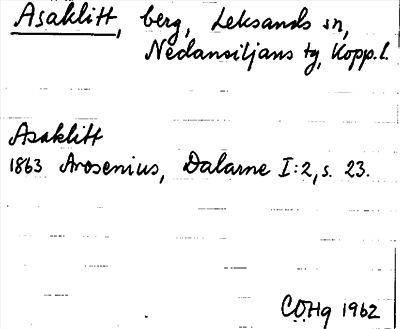 Asaklitt, berg, Leksands sn,
Nedansiljans tg, Kopp.l.
Asaklitt
1863 Arosenius, Dalarne I:2, s. 23.
C.O.Hg 1962